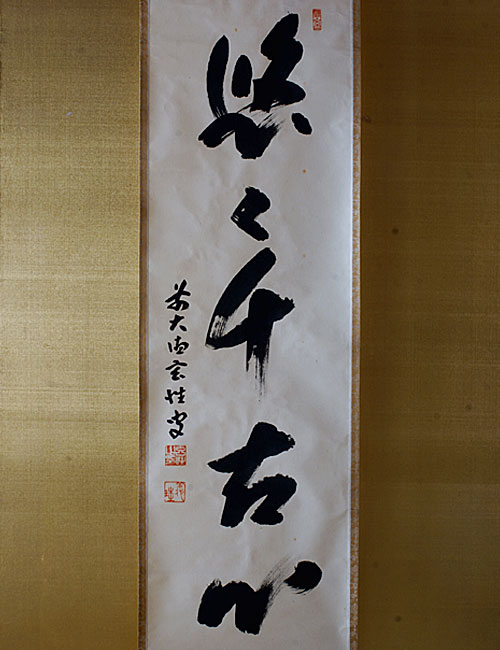 悠々千古心
前大徳玄性叟